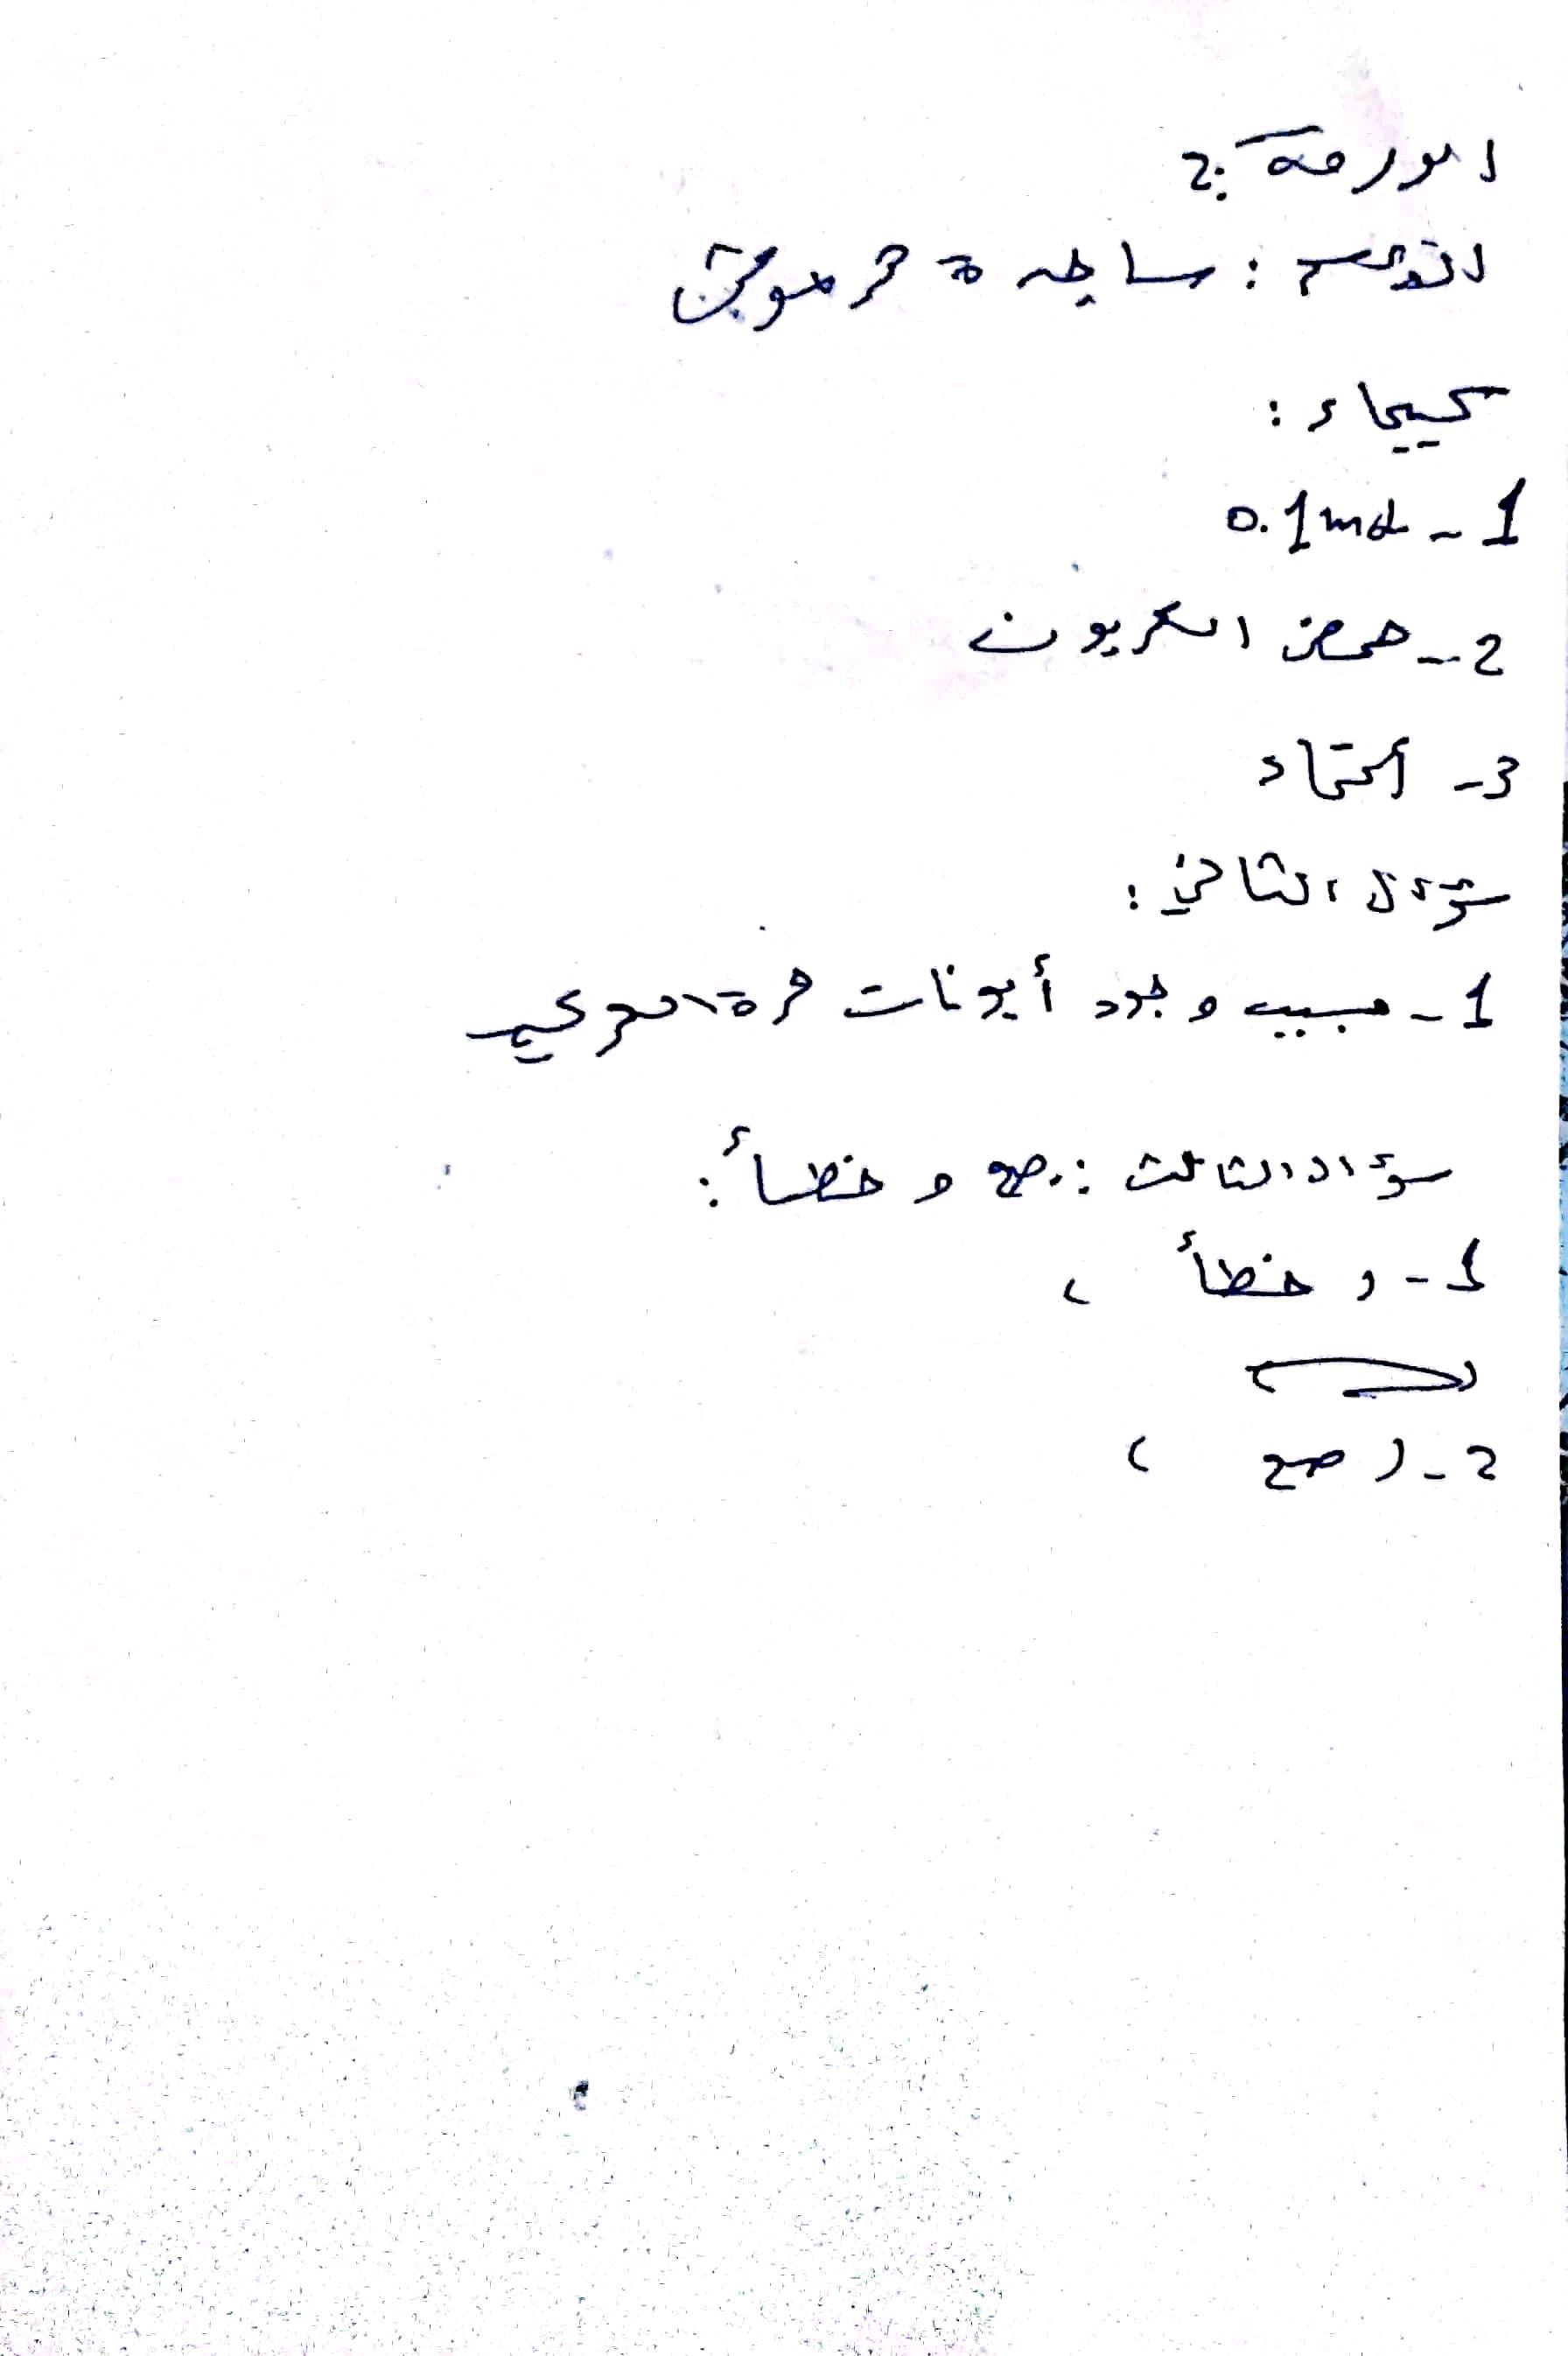 الورقة 2:
الاسم : ساجدة
كيمياء :
1 - 0.1 mol
2 - حمض الكربون
3 -
سؤال الثاني :
1 - بسبب وجود أيونات حرة
سؤال الثالث : صح و خطأ :
1 - ( خطأ )
2 - ( صح )